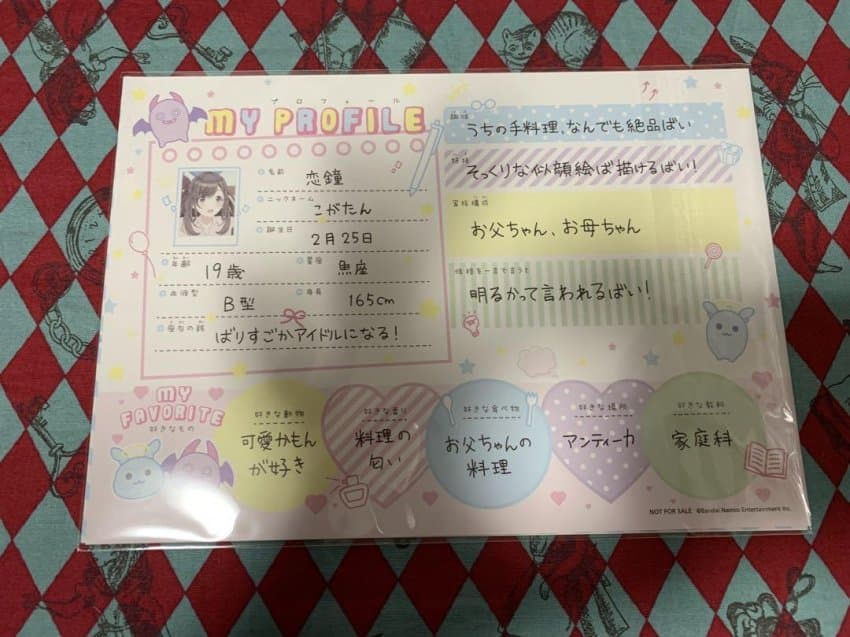 プロフィール
MY PROFILE
名前
恋鐘
ニックネーム
こがたん
誕生日
2月25日
年齢
19歳
星座
魚座
血液型
B型
身長
165cm
座右の銘
ばりすごかアイドルになる!
趣味
うちの手料理、なんでも絶品ばい
特技
そっくりな似顔絵ば描けるばい!
家族構成
お父ちゃん、お母ちゃん
性格を一言で言うと
明るかって言われるばい!
MY
FAVORITE
好きなもの
好きな動物
可愛かもん
が好き
好きな香り
料理の
匂い
好きな食べ物
お父ちゃんの
料理
好きな場所
アンティーカ
好きな教科
家庭科
NOT FOR SALE ©Bandai Namco Entertainment Inc.